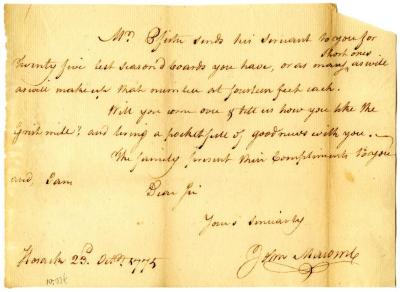 Mr. Elsth sends his servant to you for
short ones
Twenty five best season'd boards you have, or as many as will
as will make up that number at fourteen feet each.
Will you come over & tell us how you like the
Grist mill? and bring a pocket full of good news with you.
The family present their Compliments to you
and, I am
Dear Sir
Yours sincearly
John
23d. Octbr. 1775